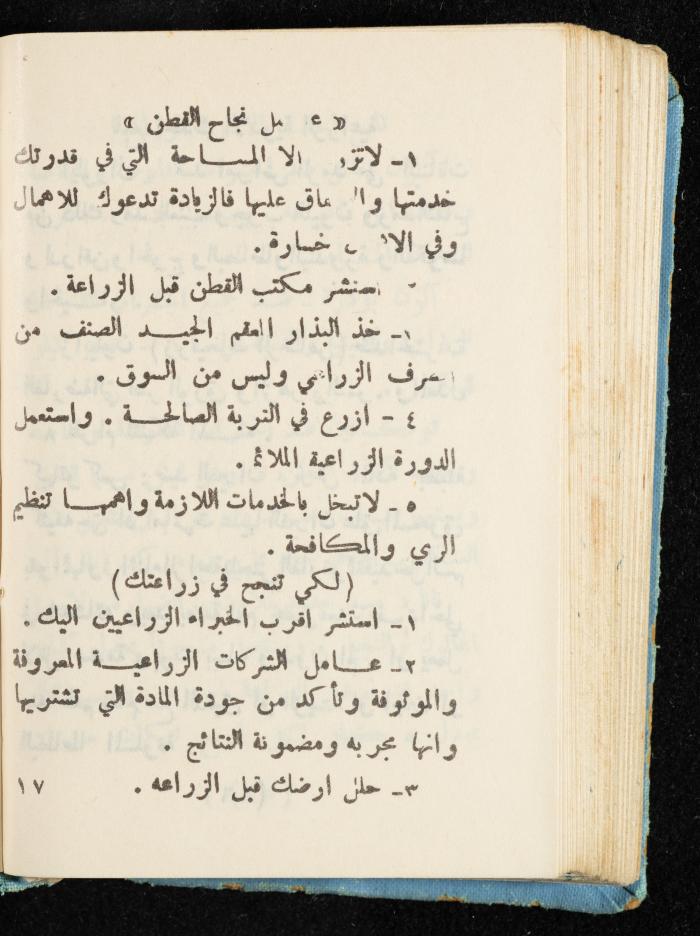 « مل نجاح القطن »
١- الا المساحة التي في قدرتك
خدمتها عليها فالزيادة تدعوك للاهمال
وفي خسارة .
مكتب القطن قبل الزراعة .
خذ البذار المعقم الجيد الصنف من
وليس من السوق .
٤ - ازرع في التربة الصالحة . واستعمل
الدورة الزراعية الملائمة .
٥ - لاتبخل بالخدمات اللازمة واهمها تنظيم
الري والمكافحة .
(لكي تنجح في زراعتك)
١- استشر اقرب الخبراء الزراعيين اليك .
٢- عامل الشركات الزراعية المعروفة
والموثوقة وتأكد من جودة المادة التي تشتريها
وانها مجربه ومضمونة النتائج .
٣- حلل ارضك قبل الزراعه .
١٧